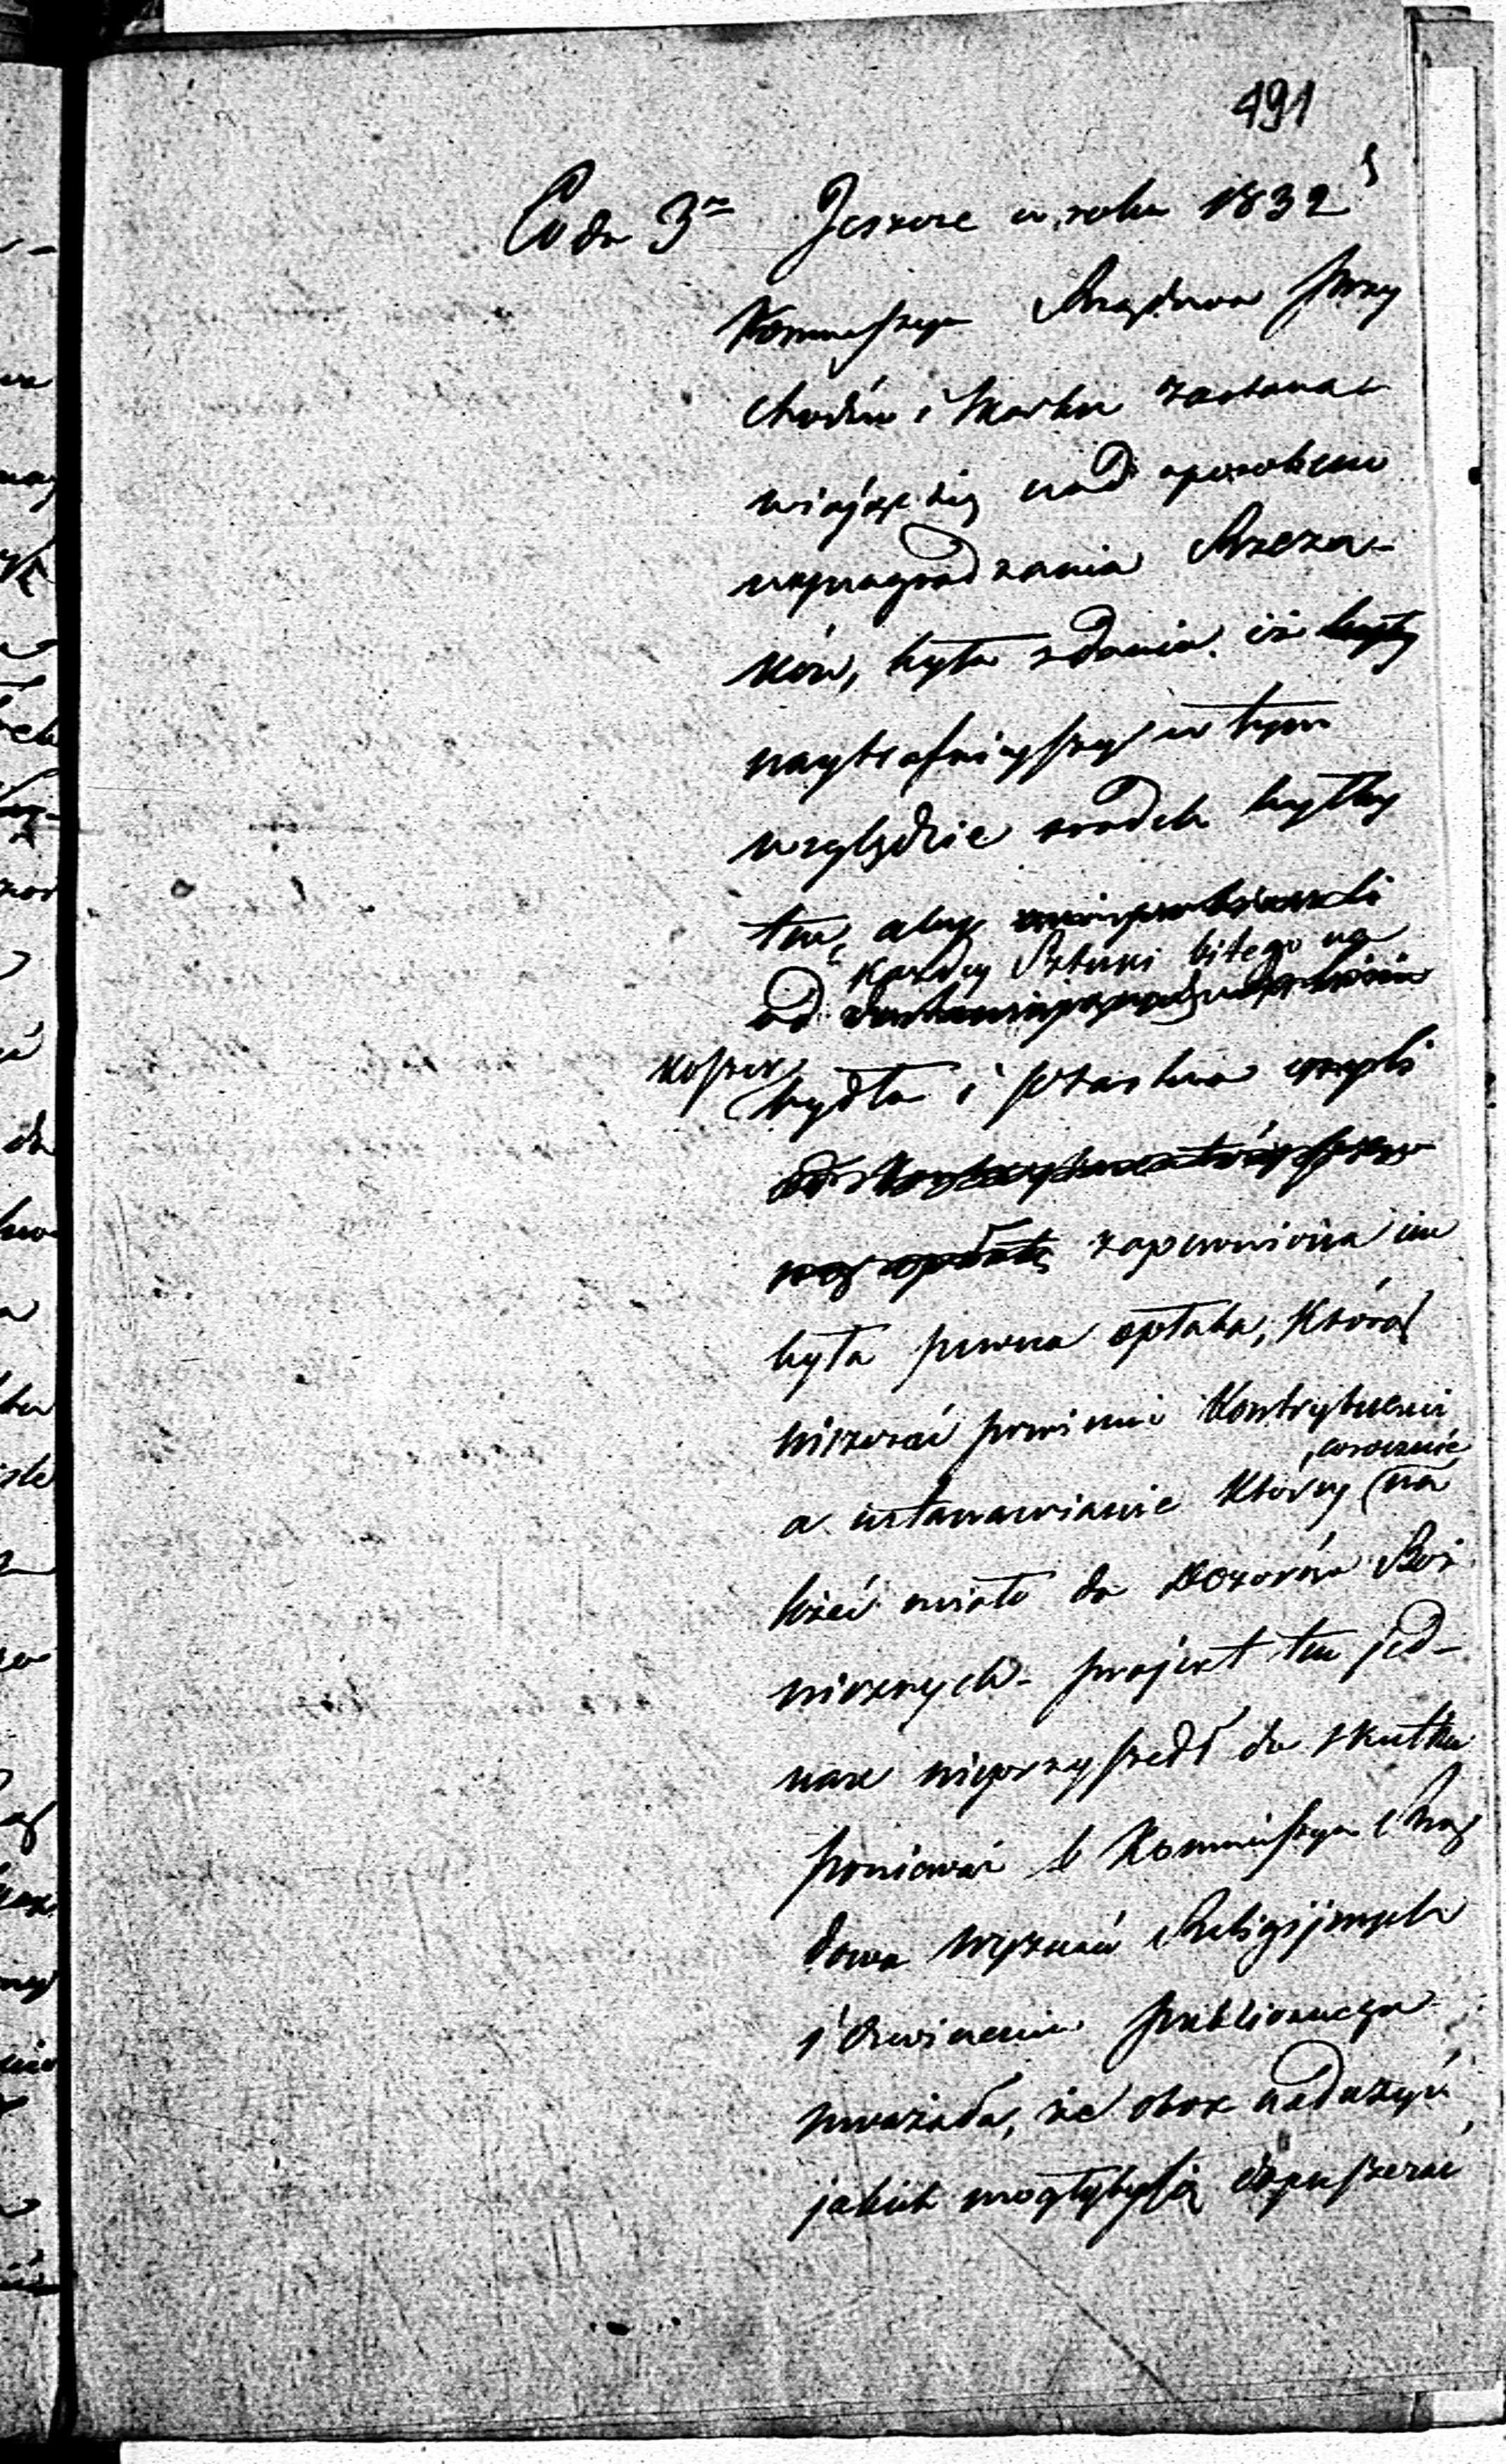 491
Co do 3º Jeszcze w roku 1832
Kommissya Rządowa Przy
chodów i Skarbu zastana-
wiając się nad sposobem
wynagradzania Rzeza-
ków, była zdania iż
naytrafnieyszy w tym
względzie środek byłby
ten, aby
każdey Sztuki bitego na
od
koszer bydła i ptastwa czyli
zapewniona im
była pewna opłata, którą
uiszczać powinni Kontrybuenci
corocznie
a ustanawianie którey na
leżeć miało do Dozorów Boż
niczych - projekt ten jed-
nak nieprzyszedł do skutku
ponieważ b Kommissya Rzą
dowa Wyznań Religijnych
i Oświecenia publicznego
uważała, że obok nadużyć
jakich mogłyby się dopuszczać